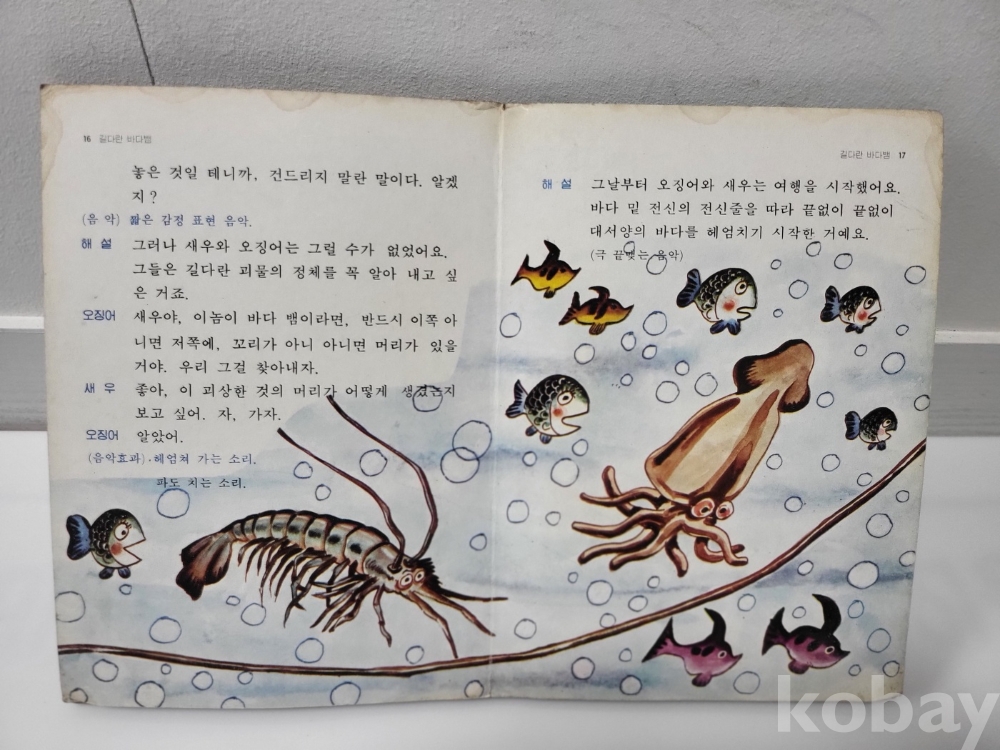 16 길다란 바다뱀
놓은 것일 테니까, 건드리지 말란 말이다. 알겠
지?
(음 악) 짧은 감정 표현 음악.
해 설 그러나 새우와 오징어는 그럴 수가 없었어요.
그들은 길다란 괴물의 정체를 꼭 알아 내고 싶
은 거죠.
오징어 새우야, 이놈이 바다 뱀이라면, 반드시 이쪽 아
니면 저쪽에, 꼬리가 아니 아니면 머리가 있을
거야. 우리 그걸 찾아내자.
새 우 좋아, 이 괴상한 것의 머리가 어떻게 생겼는지
보고 싶어. 자, 가자.
오징어 알았어.
(음악효과)·헤엄쳐 가는 소리.
파도 치는 소리.
길다란 바다뱀 17
해 설 그날부터 오징어와 새우는 여행을 시작했어요.
바다 밑 전신의 전신줄을 따라 끝없이 끝없이
대서양의 바다를 헤엄치기 시작한 거예요.
(극 끝맺는 음악)
kobay